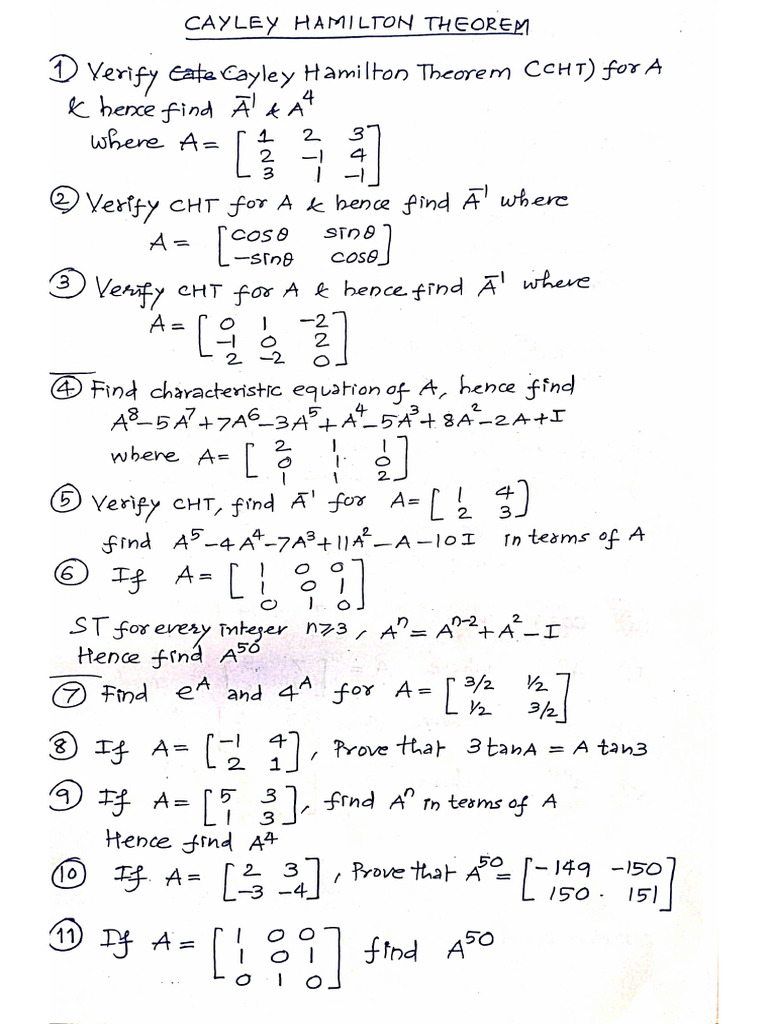 CAYLEY HAMILTON THEOREM
① Verify Cayley Hamilton Theorem (CHT) for A
& hence find A⁻¹ & A⁴
where A = [1 2 3
2 -1 4
3 1 -1]
② Verify CHT for A & hence find A⁻¹ where
A = [cosθ sinθ
-sinθ cosθ]
③ Verify CHT for A & hence find A⁻¹ where
A = [0 1 -2
-1 0 2
2 -2 0]
④ Find characteristic equation of A, hence find
A⁸-5A⁷+7A⁶-3A⁵+A⁴-5A³+8A²-2A+I
where A = [2 1 1
0 1 0
1 1 2]
⑤ Verify CHT, find A⁻¹ for A = [1 4
2 3]
find A⁵-4A⁴-7A³+11A²-A-10I in terms of A
⑥ If A = [1 0 0
1 0 1
0 1 0]
ST for every integer n≥3, Aⁿ = Aⁿ⁻²+A²-I
Hence find A⁵⁰
⑦ Find eᴬ and 4ᴬ for A = [3/2 1/2
1/2 3/2]
⑧ If A = [-1 4
2 1], Prove that 3 tanA = A tan3
⑨ If A = [5 3
1 3], find Aⁿ in terms of A
Hence find A⁴
⑩ If A = [2 3
-3 -4], Prove that A⁵⁰ = [-149 -150
150 . 151]
⑪ If A = [1 0 0
1 0 1
0 1 0] find A⁵⁰